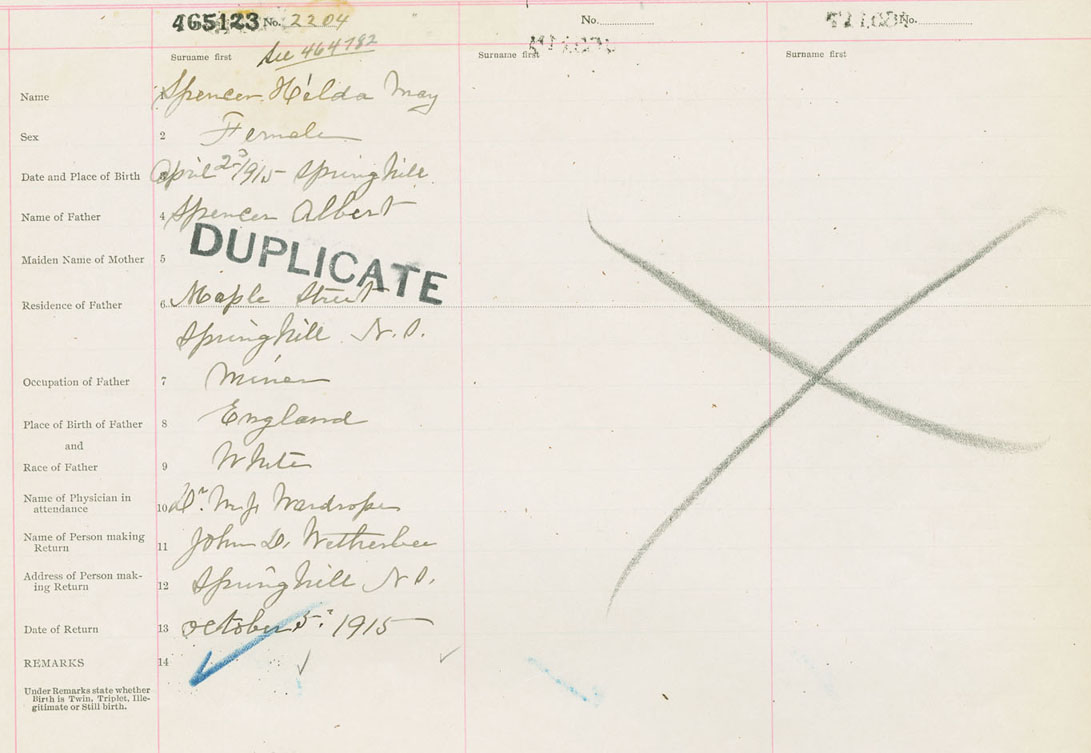 465123 No. 2204 No. No.
See 464782
Surname first Surname first Surname first
Name 1 Spencer Hilda May
Sex 2 Female
Date and Place of Birth April 1915 Springhill
Name of Father 4 Spencer Albert
DUPLICATE
Maiden Name of Mother 5
Residence of Father 6 Maple Street
Springhill N.S.
Occupation of Father 7 Miner
Place of Birth of Father 8 England
and
Race of Father 9 White
Name of Physician in
attendance 10 Dr. Wardrope
Name of Person making
Return 11 John D. Wetherbee
Address of Person mak-
ing Return 12 Springhill N.S.
Date of Return 13 October 5. 1915
REMARKS 14
Under Remarks state whether
Birth is Twin, Triplet, Ille-
gitimate or Still birth.